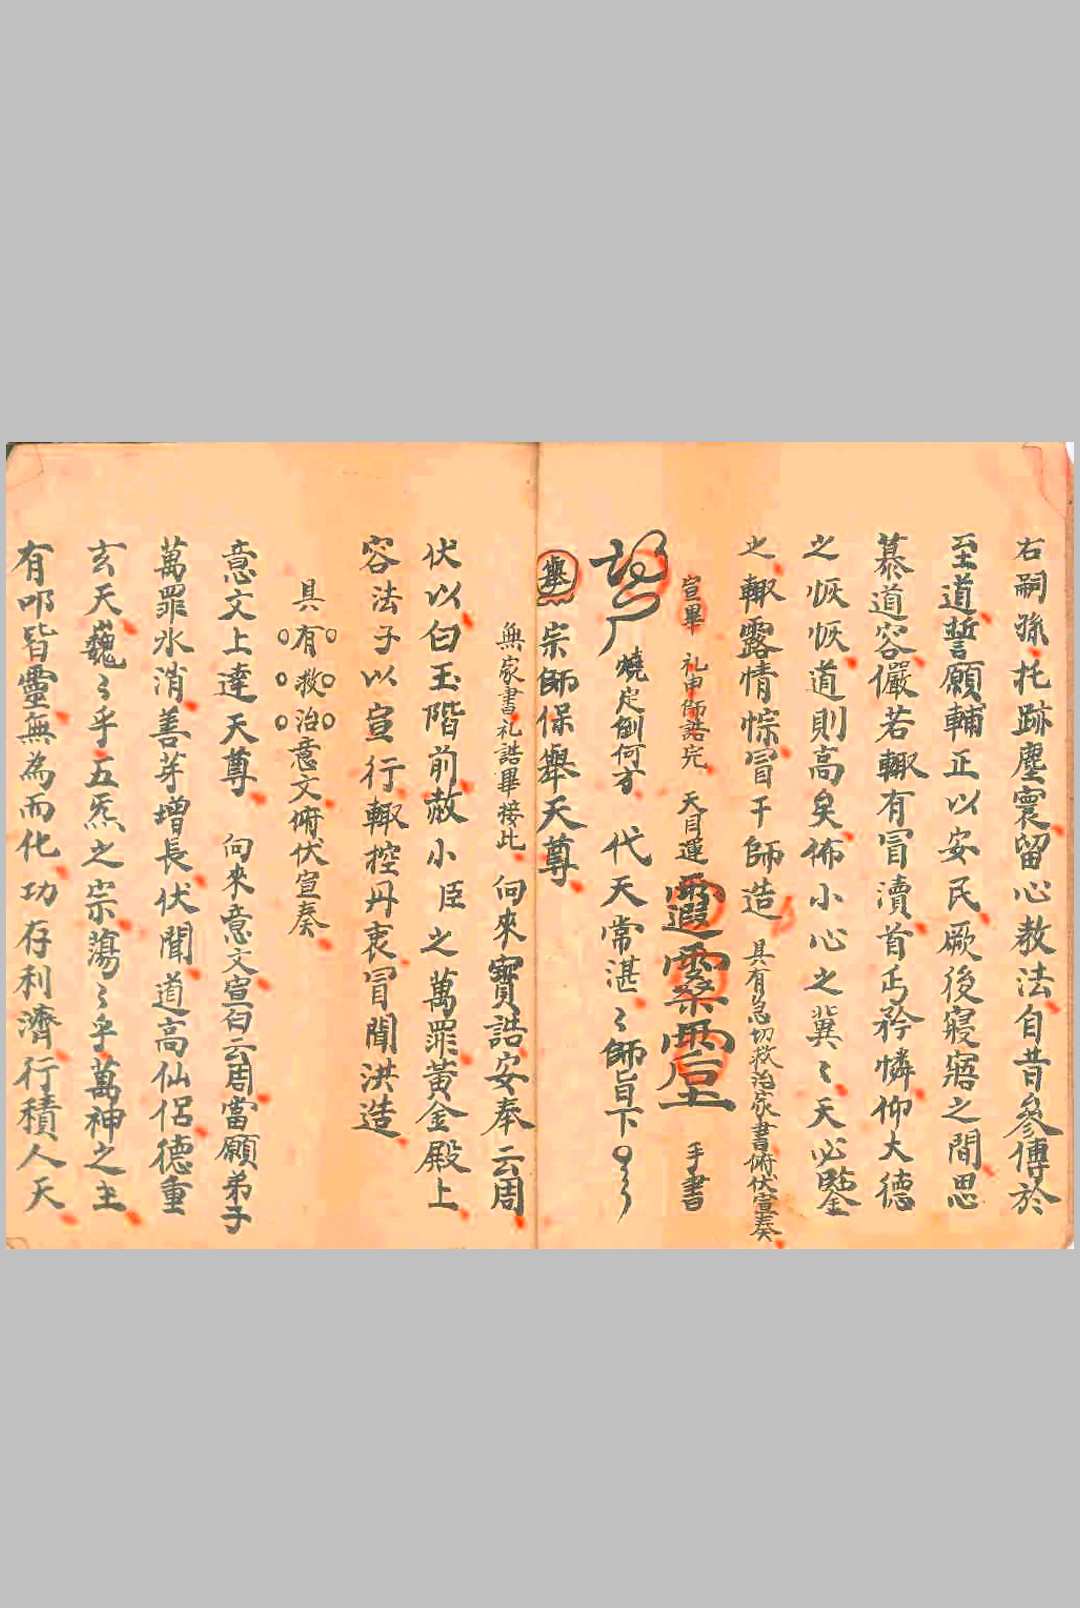 右嗣孫托跡塵寰留心教法自昔參傳於
至道誓願輔正以安民厥後寢寤之間思
慕道容儼若輙有冒瀆首丐矜憐仰大德
之恢恢道則高矣佈小心之兾〻天必鑒
之輙露情悰冒干師造 具有急切救治家書俯伏宣奏
宣畢 礼申師誥完 天目運 手書
燒定倒何方 代天常湛〻師旨下
舉 宗師保舉天尊
無家書礼誥畢接此 向來寶誥安奉云周
伏以白玉階前赦小臣之萬罪黃金殿上
容法子以宣行輙控丹衷冒聞洪造
具有救治意文俯伏宣奏
意文上達天尊 向來意文宣白云周當願弟子
萬罪氷消善芽增長伏聞道高仙侶德重
玄天巍〻乎五炁之宗蕩〻乎萬神之主
有叩皆靈無為而化功存利濟行積人天